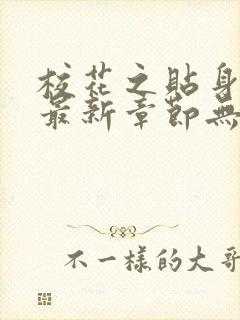 校花之貼身
最新章節無
不一樣的大哥